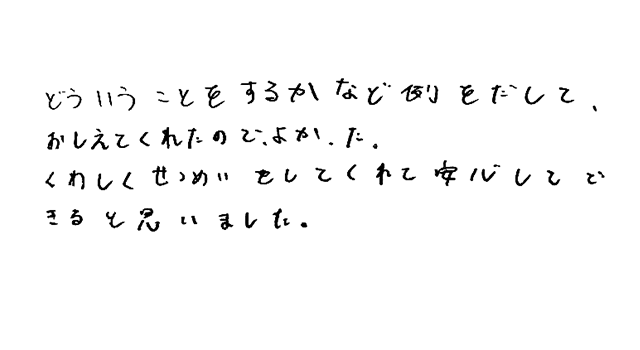 どういうことをするかなど例をだして、
おしえてくれたので、よかった。
くわしくせつめいをしてくれて安心してで
きると思いました。